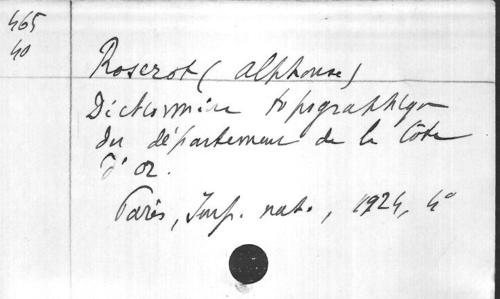 465
40
Roserot (Alphonse)
Dictionnaire topographique
du département de la Côte
d'or.
Paris, Imp. nat., 1924, 4°